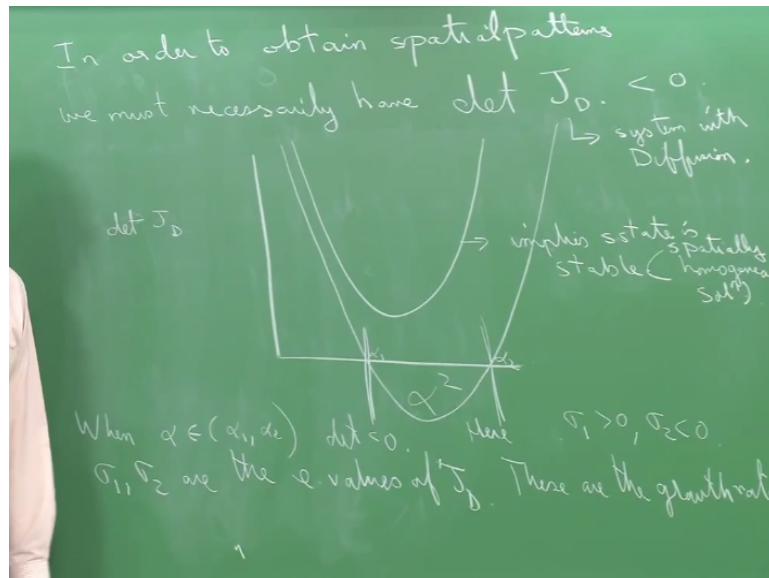 In order to obtain spatial patterns
we must necessarily have det J_D. < 0.
↳ system with
Diffusion.
det J_D
→ implies s state is
stable ( spatially
homogeneous
Solⁿ).
α₁
α₂
α²
When α ∈ (α₁, α₂) det < 0. Here σ₁ > 0, σ₂ < 0.
σ₁, σ₂ are the e. values of J_D. These are the growth rat